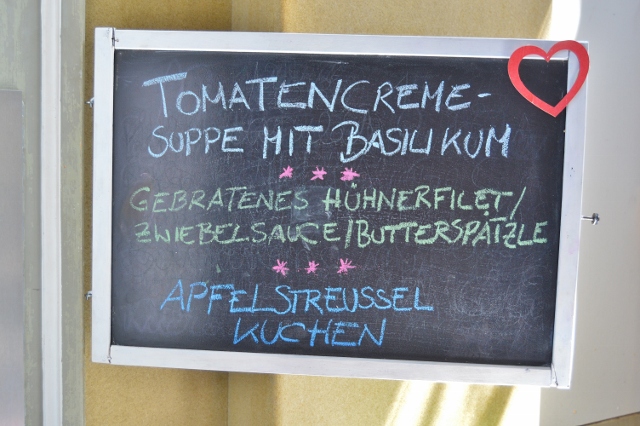 TOMATENCREME-
SUPPE MIT BASILIKUM
* * *
GEBRATENES HÜHNERFILET/
ZWIEBELSAUCE/BUTTERSPÄTZLE
* * *
APFELSTREUSSEL
KUCHEN